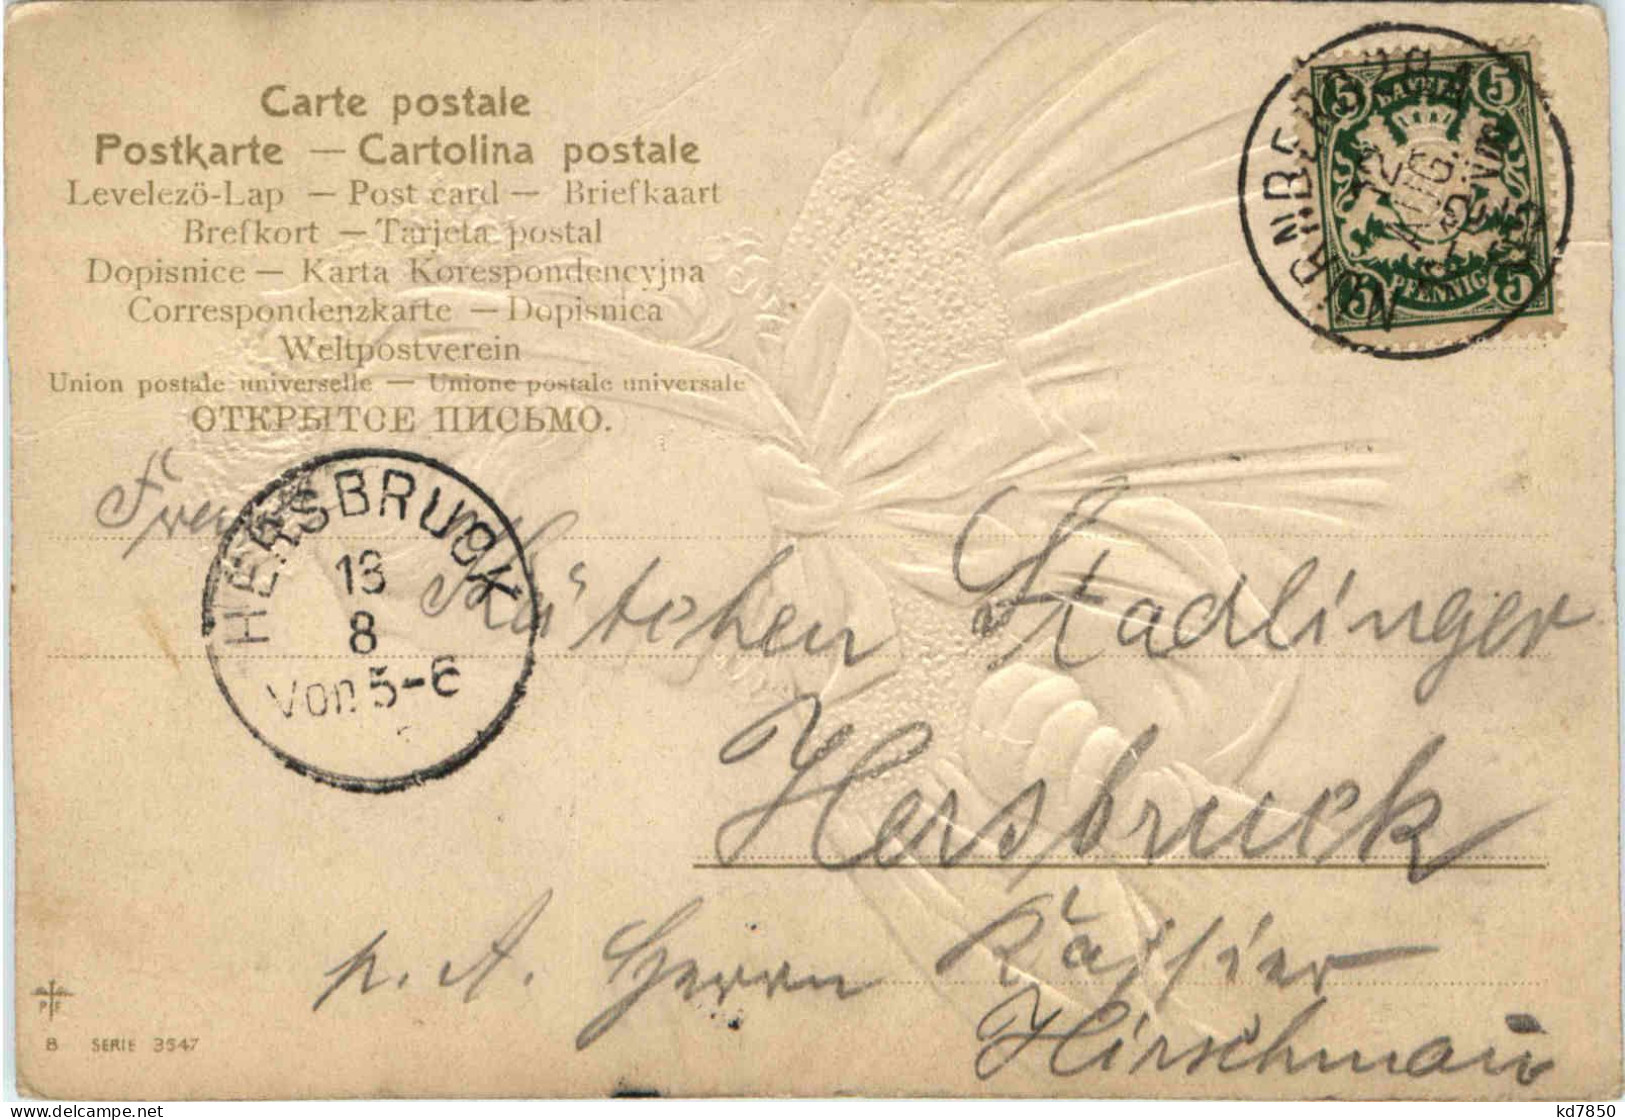 Carte postale
Postkarte — Cartolina postale
Levelezö-Lap — Post card — Briefkaart
Brefkort — Tarjeta postal
Dopisnice — Karta Korespondencyjna
Correspondenzkarte — Dopisnica
Weltpostverein
Union postale universelle — Unione postale universale
ОТКРЫТОЕ ПИСЬМО.
5 BAYERN 5
5 PFENNIG 5
NÜRNBERG
12
AUG.
HERSBRUCK
13
8
Von 5-6
Kätchen Stadlinger
Hersbruck
p. A. Herrn Kassier
Hirschmann
PF
B SERIE 3547
kd7850